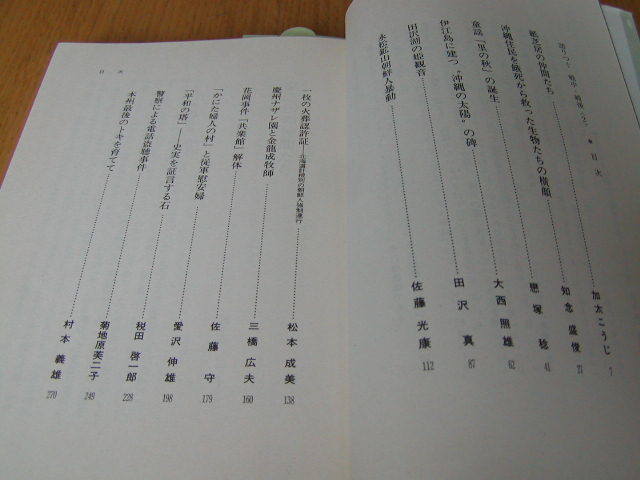 語りつぐ 戦中・戦後(2) ● 目次
紙芝居の仲間たち 加太こうじ 7
沖縄住民を餓死から救った生物たちの横顔 知念盛俊 27
童謡「里の秋」の誕生 懸塚稔 41
伊江島に建つ“沖縄の太陽”の碑 大西照雄 62
田沢湖の姫観音 田沢真 87
永松鉱山朝鮮人暴動 佐藤光康 112
一枚の火葬認許証 松本成美 138
慶州ナザレ園と金龍成牧師 三橋広夫 160
花岡事件「共楽館」解体 佐藤守 179
「かにた婦人の村」と従軍慰安婦 愛沢伸雄 198
「平和の塔」——史実を証言する石 税田啓一郎 228
警察による電話盗聴事件 菊地原芙二子 249
本州最後のトキを育てて 村本義雄 270
目次